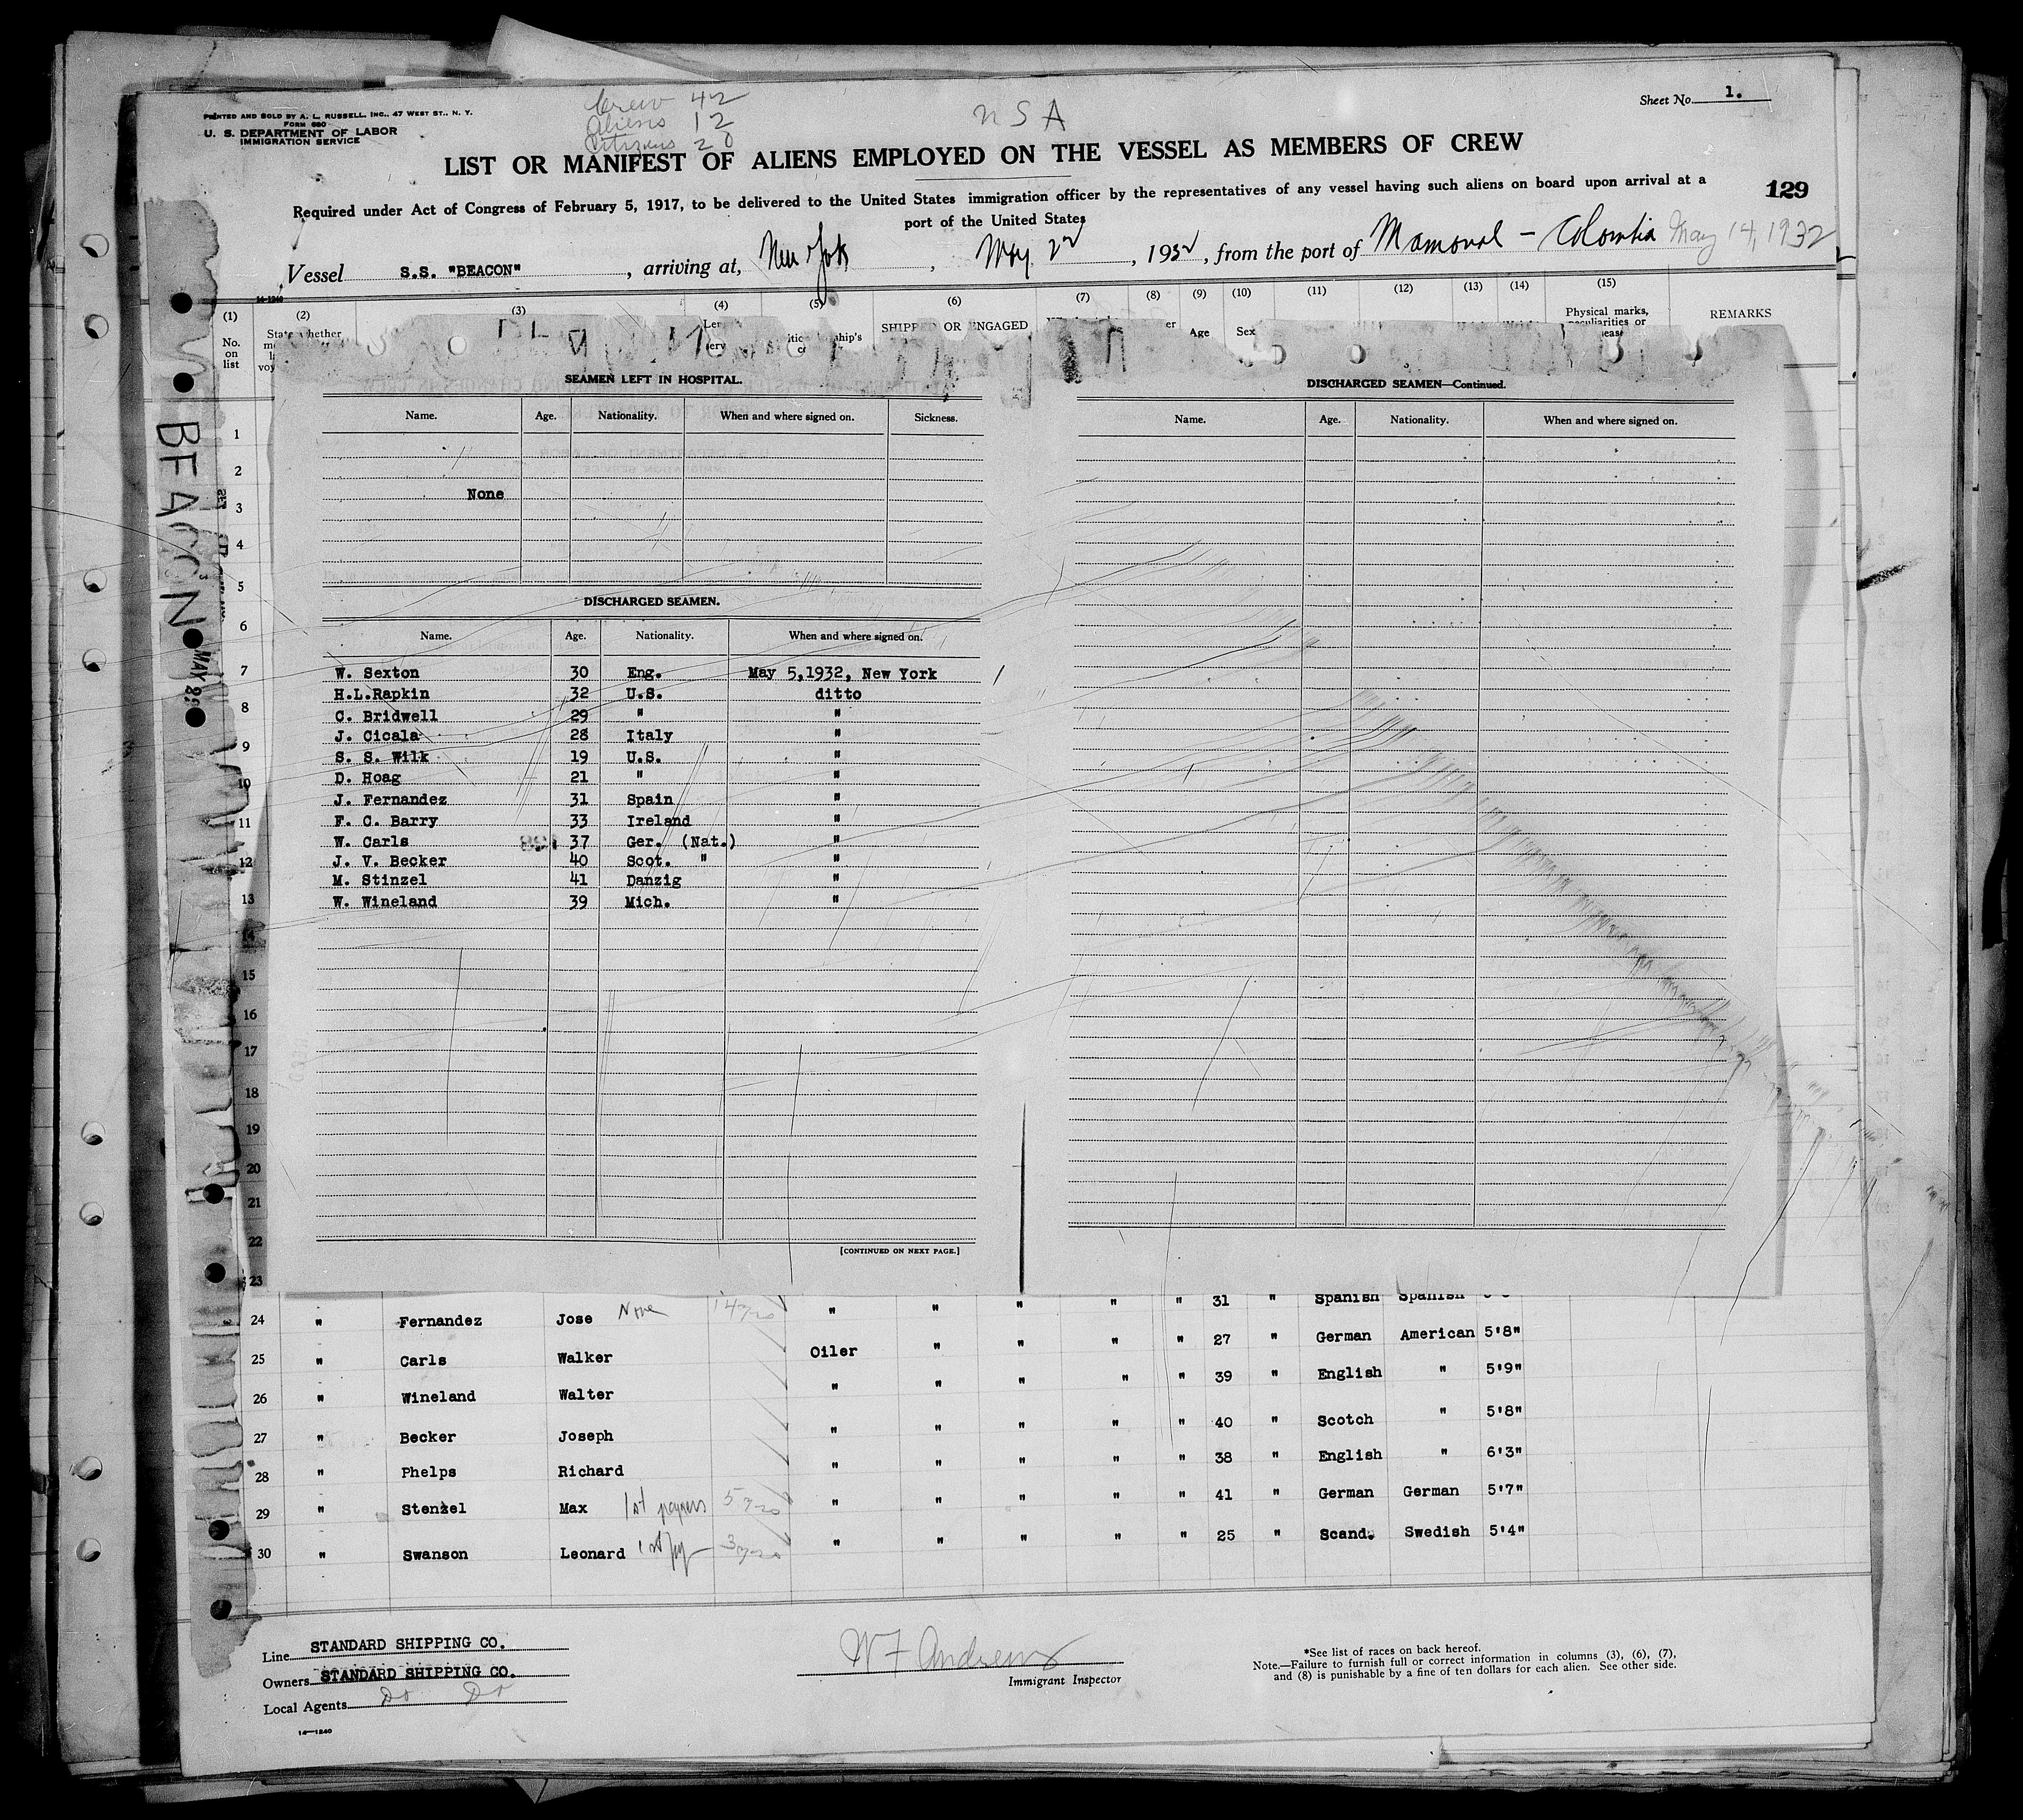 Crew 42
Aliens 12
Citizens 20
N S A
Sheet No. 1.
PRINTED AND SOLD BY A. L. RUSSELL, INC., 47 WEST ST., N. Y.
FORM 680
U. S. DEPARTMENT OF LABOR
IMMIGRATION SERVICE
LIST OR MANIFEST OF ALIENS EMPLOYED ON THE VESSEL AS MEMBERS OF CREW
129
Required under Act of Congress of February 5, 1917, to be delivered to the United States immigration officer by the representatives of any vessel having such aliens on board upon arrival at a
port of the United States
Vessel S.S. "BEACON", arriving at, New York, May 22, 1932, from the port of Mamonal - Colombia May 14, 1932
14-1240
(1) (2) (3) (4) (5) (6) (7) (8) (9) (10) (11) (12) (13) (14) (15)
No. on list
SHIPPED OR ENGAGED
Age
Sex
Physical marks, peculiarities or
REMARKS
BEACON
SEAMEN LEFT IN HOSPITAL.
Name. Age. Nationality. When and where signed on. Sickness.
None
DISCHARGED SEAMEN.
Name. Age. Nationality. When and where signed on.
W. Sexton 30 Eng. May 5,1932, New York
H.L.Rapkin 32 U.S. ditto
C. Bridwell 29 " "
J. Cicala 28 Italy "
S. S. Wilk 19 U.S. "
D. Hoag 21 " "
J. Fernandez 31 Spain "
F. C. Barry 33 Ireland "
W. Carls 37 Ger. (Nat.) "
J. V. Becker 40 Scot. " "
M. Stinzel 41 Danzig "
W. Wineland 39 Mich. "
[CONTINUED ON NEXT PAGE.]
DISCHARGED SEAMEN—Continued.
Name. Age. Nationality. When and where signed on.
1
2
3
4
5
6
7
8
9
10
11
12
13
14
15
16
17
18
19
20
21
22
23
24 " Fernandez Jose None 14 yrs " " " " " 31 " Spanish Spanish
25 " Carls Walker Oiler " " " " 27 " German American 5'8"
26 " Wineland Walter " " " " " 39 " English " 5'9"
27 " Becker Joseph " " " " " 40 " Scotch " 5'8"
28 " Phelps Richard " " " " " 38 " English " 6'3"
29 " Stenzel Max 1st papers 5 yrs " " " " " 41 " German German 5'7"
30 " Swanson Leonard 3 yrs " " " " " 25 " Scand. Swedish 5'4"
Line STANDARD SHIPPING CO.
Owners STANDARD SHIPPING CO.
Local Agents Do Do
14—1240
W F Andrews
Immigrant Inspector
*See list of races on back hereof.
Note.—Failure to furnish full or correct information in columns (3), (6), (7),
and (8) is punishable by a fine of ten dollars for each alien. See other side.